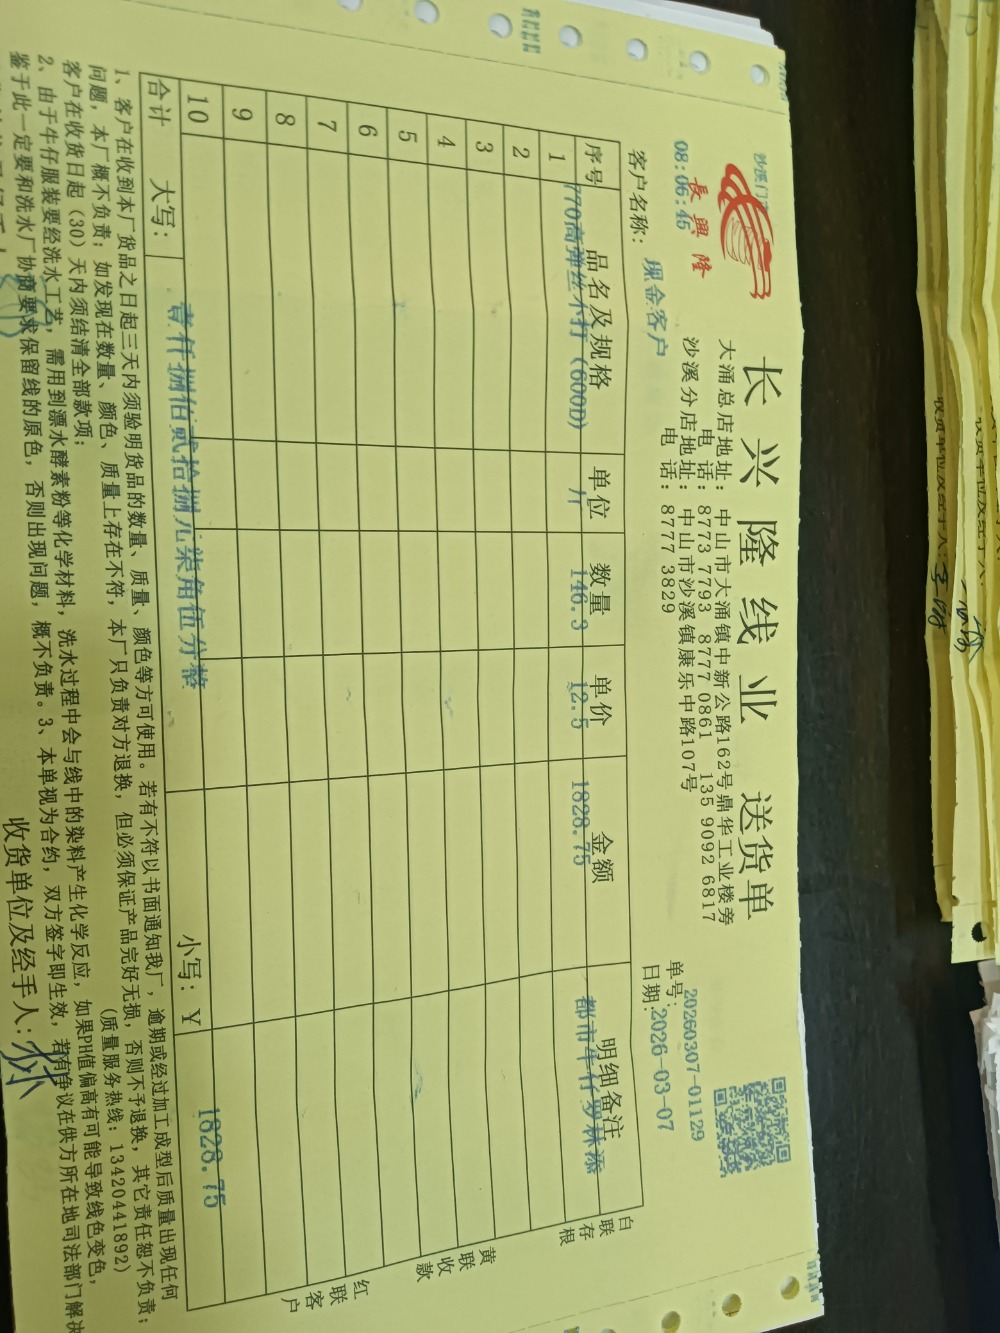 長興隆
08:06:45
长兴隆线业 送货单
大涌总店地址：中山市大涌镇中新公路162号鼎华工业楼旁
电 话：8773 7793 8777 0861 135 9092 6817
沙溪分店地址：中山市沙溪镇康乐中路107号
电 话：8777 3829
单号：20260307-01129
客户名称：现金客户
日期：2026-03-07
序号 品名及规格 单位 数量 单价 金额 明细备注
1 770高弹丝不打（600D） 146.3 12.5 1828.75 都市牛仔罗林添
2
3
4
5
6
7
8
9
10
合计 大写：壹仟捌佰贰拾捌元柒角伍分整 小写：Y 1828.75
白联存根
黄联收款
红联客户
1、客户在收到本厂货品之日起三天内须验明货品的数量、质量、颜色等方可使用。若有不符以书面通知我厂，逾期或经过加工成型后质量出现任何
问题，本厂概不负责；如发现在数量、颜色、质量上存在不符，本厂只负责对方退换，但必须保证产品完好无损，否则不予退换，其它责任恕不负责；
客户在收货日起（30）天内须结清全部款项； （质量服务热线：13420441892）
2、由于牛仔服装要经洗水工艺，需用到漂水酵素粉等化学材料，洗水过程中会与线中的染料产生化学反应，如果PH值偏高有可能导致线色变色，
鉴于此一定要和洗水厂协商要求保留线的原色，否则出现问题，概不负责。3、本单视为合约，双方签字即生效，若有争议在供方所在地司法部门解决
收货单位及经手人：
收货单位及经手人：
收货单位及经手人：